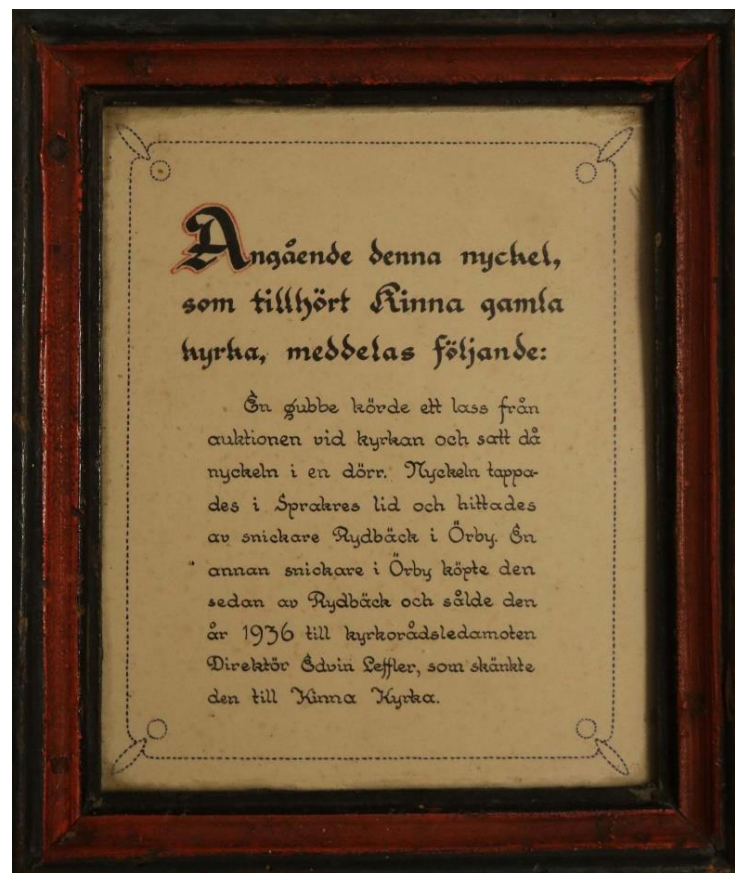 Angående denna nyckel,
som tillhört Kinna gamla
kyrka, meddelas följande:
En gubbe körde ett lass från
auktionen vid kyrkan och satt då
nyckeln i en dörr. Nyckeln tappa-
des i Sprakres lid och hittades
av snickare Rydbäck i Örby. En
annan snickare i Örby köpte den
sedan av Rydbäck och sålde den
år 1936 till kyrkorådsledamoten
Direktör Edvin Leffler, som skänkte
den till Kinna Kyrka.